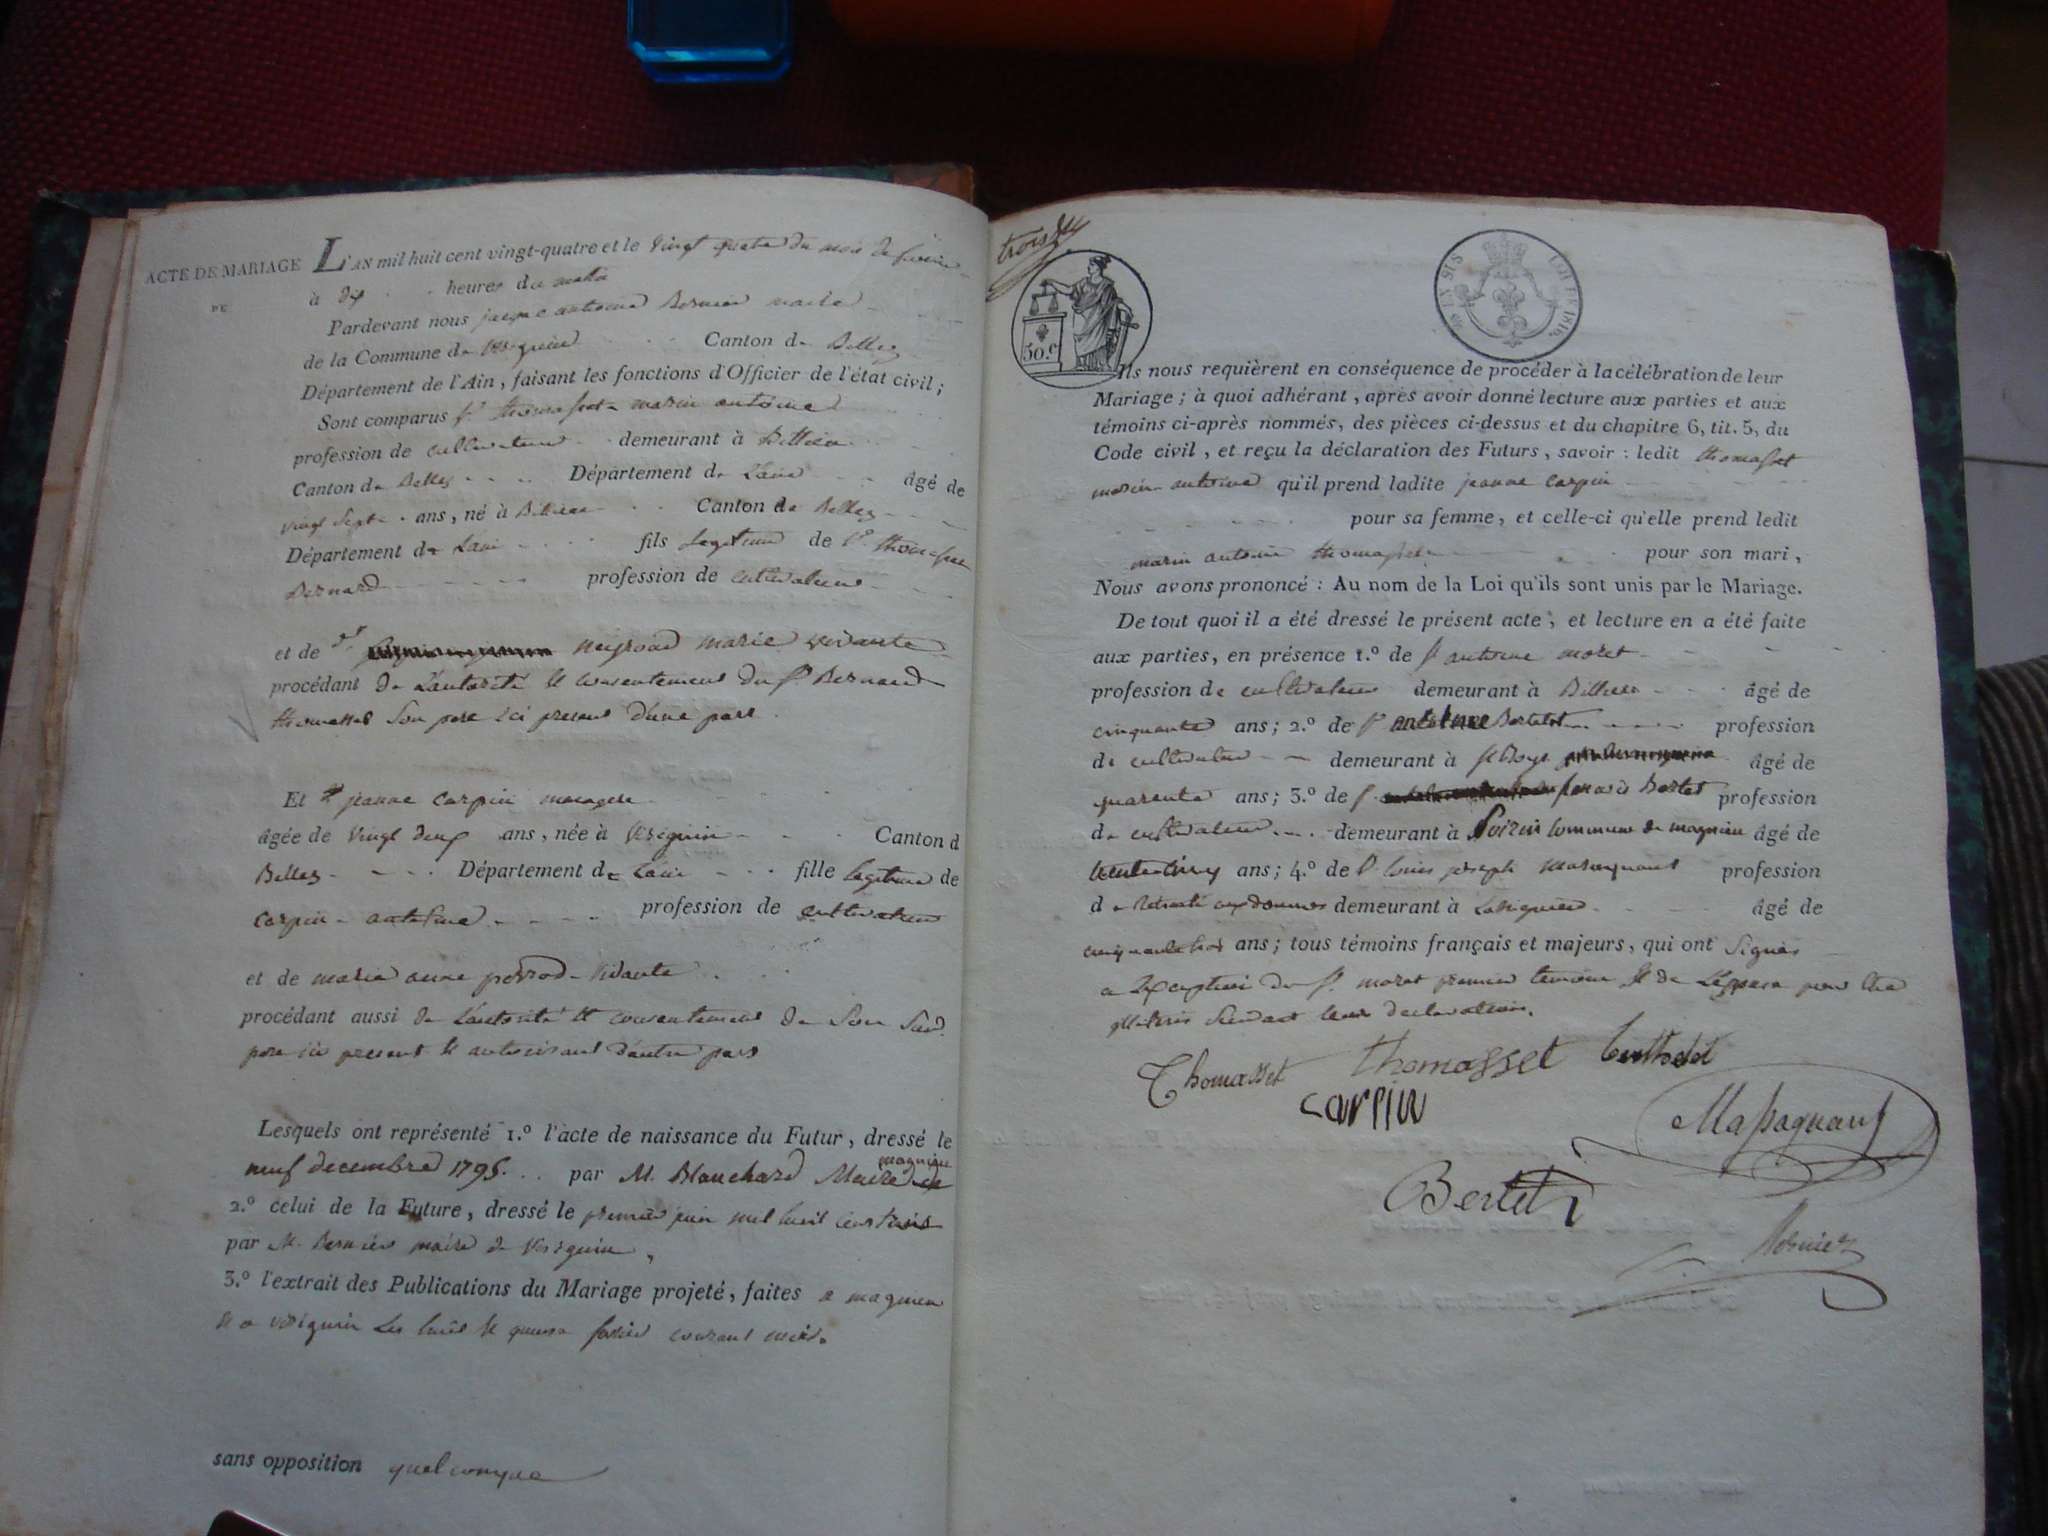 ACTE DE MARIAGE
DE
L'AN mil huit cent vingt-quatre et le vingt quatre du mois de fevrier
à dix heures du matin
Pardevant nous jacque antoine Bernier maire
de la Commune de Canton de Belley
Département de l'Ain, faisant les fonctions d'Officier de l'état civil;
Sont comparus sr thomasset marin antoine
profession de cultivateur demeurant à Billieu
Canton de Belley Département de L'ain âgé de
vingt sept ans, né à Billieu Canton de Belley
Département de L'ain fils legitime de sr thomasset
Bernard profession de cultivateur
et de neyroud marie vivante
procédant de L'autorité et consentement du sr Bernard
thomasset son pere ici present d'une part.
Et jeanne carpin menagere
âgée de vingt deux ans, née à Canton d
Belley Département de L'ain fille legitime de
carpin antoine profession de cultivateur
et de marie anne perrod vivante
procédant aussi de L'autorité et consentement de son
pere ici present et autorisant d'autre part
Lesquels ont représenté 1.º l'acte de naissance du Futur, dressé le
magnieu
neuf decembre 1796. par M. Blanchard Maire de
2.º celui de la Future, dressé le premier juin mil huit cent trois
par M. Bernier maire de
3.º l'extrait des Publications du Mariage projeté, faites a magnieu
et a les huit et quinze fevrier courant mois.
sans opposition quelconque
trois
50.c
LOI DE 1816.
Ils nous requièrent en conséquence de procéder à la célébration de leur
Mariage; à quoi adhérant, après avoir donné lecture aux parties et aux
témoins ci-après nommés, des pièces ci-dessus et du chapitre 6, tit. 5, du
Code civil, et reçu la déclaration des Futurs, savoir: ledit thomasset
marin antoine qu'il prend ladite jeanne carpin
pour sa femme, et celle-ci qu'elle prend ledit
marin antoine thomasset pour son mari,
Nous avons prononcé: Au nom de la Loi qu'ils sont unis par le Mariage.
De tout quoi il a été dressé le présent acte, et lecture en a été faite
aux parties, en présence 1.º de sr antoine moret
profession de cultivateur demeurant à Billieu âgé de
cinquante ans; 2.º de sr antoine Bertelot profession
de cultivateur demeurant à âgé de
quarante ans; 3.º de sr Bertet profession
de cultivateur demeurant à commune de magnieu âgé de
trente cinq ans; 4.º de sr louis joseph profession
de retraité aux douanes demeurant à âgé de
ans; tous témoins français et majeurs, qui ont signés
a L'exception du sr moret premier temoin et de L'epouse pour etre
illiteres suivant leur declaration.
Thomasset thomasset berthelot
carpin
Massognant
Bertet
Bernier